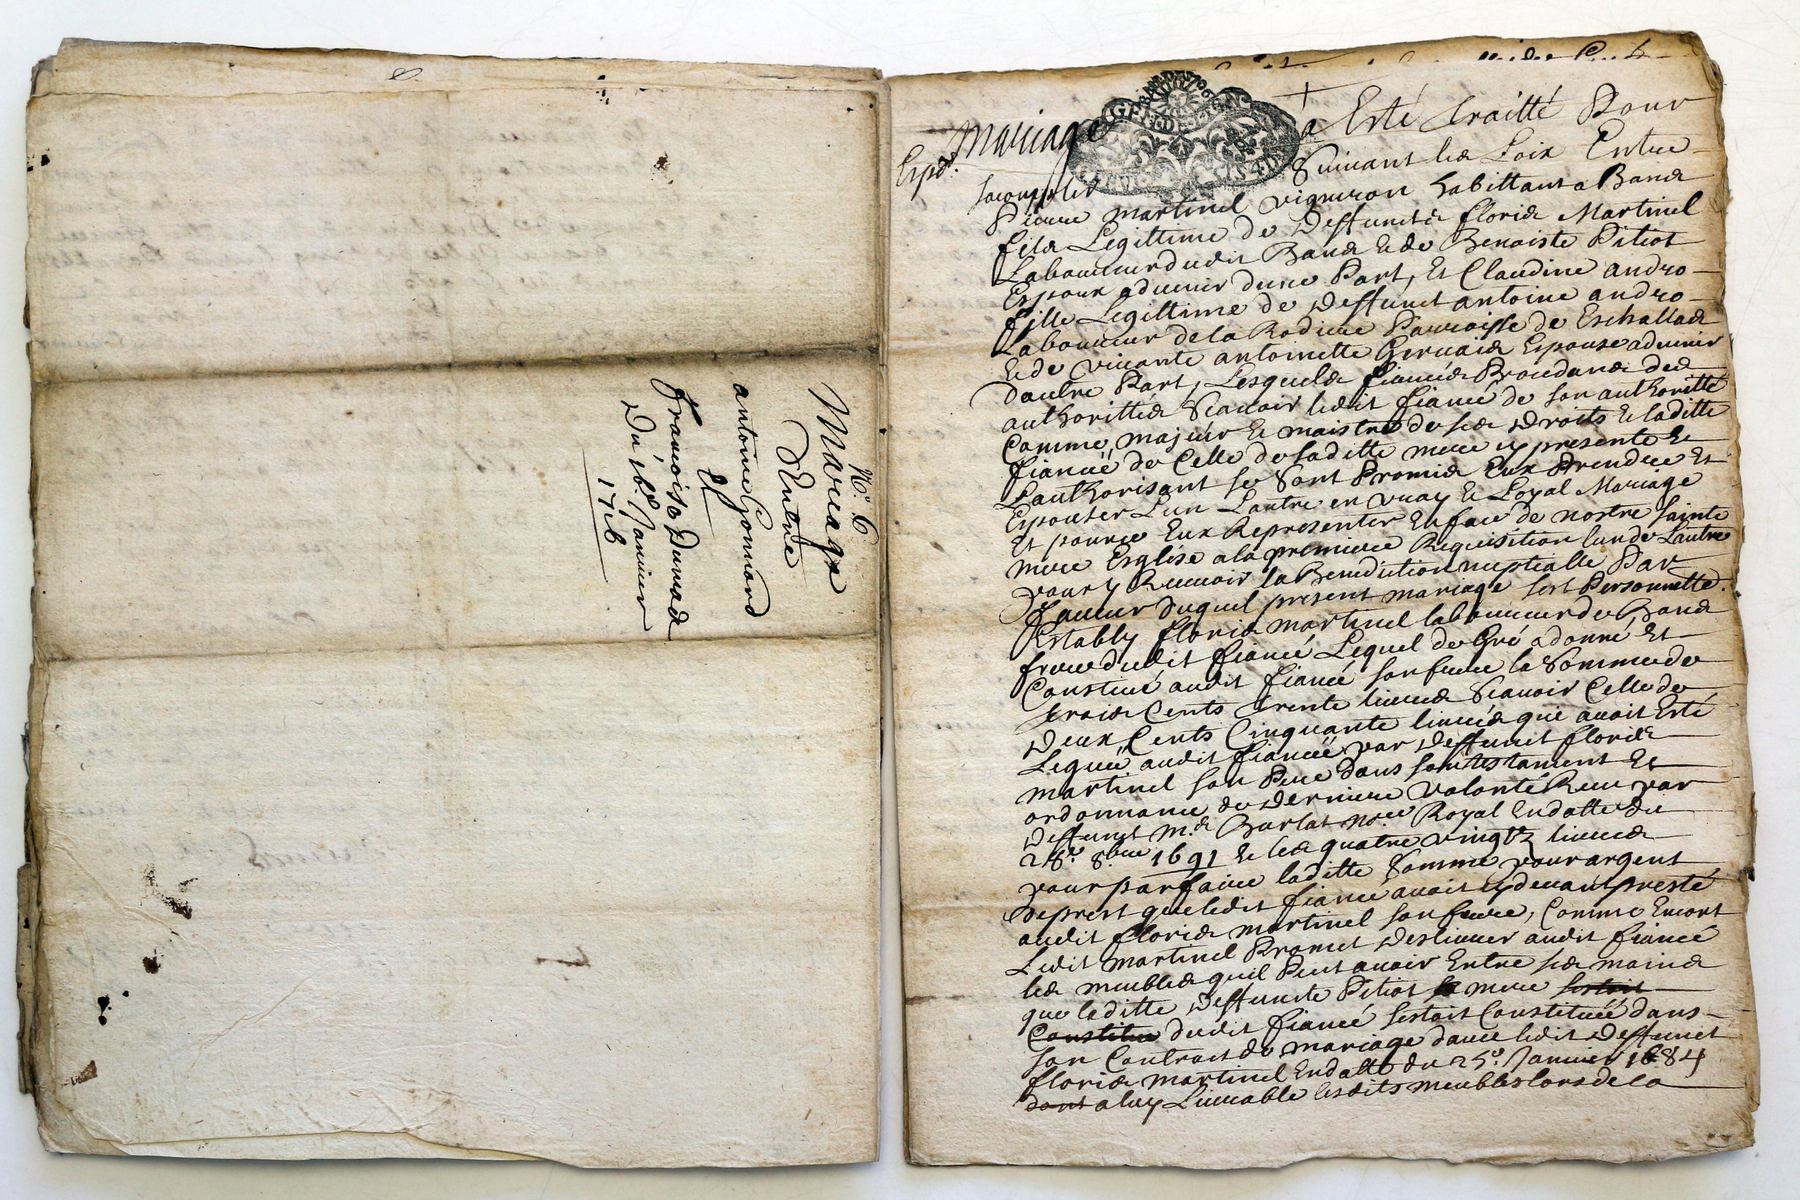 N.º 6
Mariage
Entre
antoine Gonnard
Et
francoise Durand
Du 16.e Janvier
1716
Mariage
Exp.
a Esté traitté Pour
Suivant les Loix Entre
Pierre martinel vigneron habittant a Bans
fils Legittime de Deffunts floris Martinel
Laboureur dudit Bans Et de Benoiste Pitiot
Espoux advenir dune Part, Et Claudine andro
fille Legittime de Deffunct antoine andro
Laboureur de la Rodiere Parroisse de Eschallas
Et de vivante antoinette Gervais Espouse advenir
dautre Part, Lesquels fiancés Procedans des
authorittés Scavoir ledit fiancé de son authoritté
Comme majeur Et maistre de ses Droits Et laditte
fiancée de Celle de saditte mere cy presente Et
Lauthorisant se sont Promis Eux Prendre Et
Espouser Lun Lautre en vray Et Loyal Mariage
Et pource Eux Representer En face de nostre sainte
mere Esglise a la premiere Requisition lun de Lautre
pour y Recevoir la Benediction nuptialle Par
faveur duquel present mariage sest Personnelle.
Estably floris martinel laboureur de Bans
frere dudit fiancé Lequel de Gré a donné Et
Constitué audit fiancé son frere la Somme de
trois Cents trente livres Scavoir Celle de
Deux Cents Cinquante livres que avoit Esté
Legués audit fiancé par Deffunct floris
martinel son Pere dans son testament Et
ordonnance de Derniere volonté Receu par
Deffunct M.e Barlat no.re Royal En datte du
28.e 8bre 1691 Et les quatre vingtz livres
pour parfaire laditte Somme pour argent
de prest que ledit fiancé avoit cy devant presté
audit floris martinel son frere, Comme Encore
Ledit martinel Promet Deslivrer audit fiancé
les meubles quil Peut avoir Entre ses mains
que laditte Deffuncte Pitiot mere sestoit
Constitué dudit fiancé sestoit Constituée dans
son Contrat de mariage davec ledit Deffunct
floris martinel En datte du 25.e Janvier 1684
dont a luy Livrable lesdits meubles lors de la